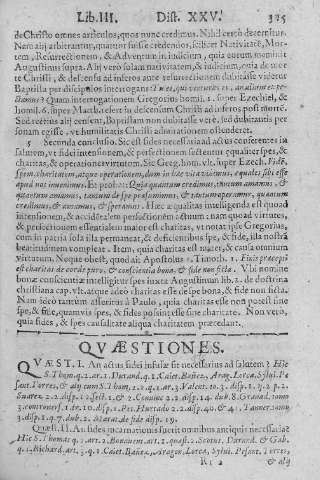 Lib. III. Dist. XXV. 315
de Christo omnes articulos, quos nunc credimus. Nihil certo decernitur.
Nam alij arbitrantur, quatuor fuisse credendos, scilicet Nativitatē, Mor-
tem, Resurrectionem, & Adventum in iudicium, quia eorum meminit
Augustinus supra. Alij vero solam nativitatem, & iudicium, quia de mor
te Christi, & descensu ad inferos ante resurrectionem dubitasse videtur
Baptista per discipulos interrogans: Tu es, qui venturus es, an alium ex-
pectamus? Quam interrogationem Gregorius homil. 1. super Ezechiel, &
homil. 6. super Matth. refert ad descensum Christi ad inferos post mortē.
Sed rectius alij censent, Baptistam non dubitasse verè, sed dubitantis per
sonam egisse, vt humilitatis Christi admirationem ostenderet.
5 Secunda conclusio. Sed fides est necessaria ad actus conferentes in
salutem, vt fidei intensionem, & perfectionem sectentur equaliter spes, &
charitas, & operationes virtutum. Sic Greg. hom. vlt. super Ezech. Fidē,
spem, charitatem, atque operationem, dum in hac vita vivimus, equales sibi esse
apud nos invenimus. Et probat: Quia quantum credimus, tantum amamus, &
quantum amamus, tantum de spe praesumimus, & tantum operamur, quantum
credimus, & amamus, & speramus. Haec aequalitas intelligenda est quoad
intensionem, & accidētalem perfectionem actuum: nam quoad virtutes,
& perfectionem essentialem maior est charitas, vt notat ipse Gregorius,
cum in patria sola illa permaneat, & deficientibus spe, & fide, illa nostrā
beatitudinem compleat. Item, quia charitas est mater, & causa omnium
virtutum. Noque obest, quod ait Apostolus 1. Timoth. 1. Finis praecepti
est charitas de corde puro, & conscientia bona, & fide non ficta. Vbi nomine
bonae conscientiae intelligitur spes iuxta Augustinum lib. 1. de doctrina
christiana cap. vlt. atque adeo charitas esse de spe bona, & fide non ficta.
Nam ideo tantum asseritur à Paulo, quia charitas esse non potest sine
spe, & fide, quamvis spes, & fides possint esse sine charitate. Non vero,
quia fides, & spes causalitate aliqua charitatem praecedant.
QVÆSTIONES.
QVÆST. I. An actus fidei infusae sit necessarius ad salutem? Hic
S. Thom. q. 1. ar. 1. Durand. q. 1. Caiet. Bañez, Arag. Lorca, Sylui. Pe
sant. Torres, & alij cum S. Thom. 2. 2. q. 2. ar. 3. Valent. to. 3. disp. 1. q. 2. p. 2.
Suarez 2. 2. disp. 12. sect. 1. & 2. Coninc. 2. 2. disp. 14. dub. 8. Granad. tom.
3. controvers. 1. tr. 10. disp. 1. Pet. Hurtado 2. 2. disp. 40. & 41. Tanner. tom.
3. disp. 1. q. 7. dub. 2. Marat. de fide disp. 19.
Quaest. II. An fides incarnationis fuerit omnibus antiquis necessaria?
Hic S. Thomas q. 2. art. 2. Bonavent. art. 2. quaest. 2. Scotus, Durand. & Gab.
q. 1. Richard. art. 3. q. 1. Caiet. Bañez, Aragon, Lorca, Sylui. Pesant. Torres,
Rr 2 & alij